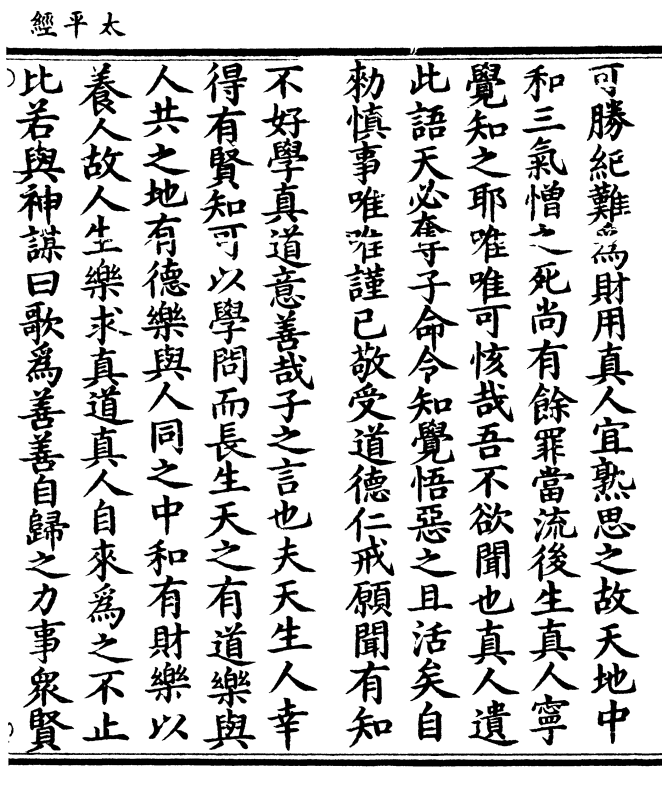 太平經
可勝紀難爲財用真人宜熟思之故天地中
和三氣憎之死尚有餘罪當流後生真人寧
覺知之耶唯唯可怪哉吾不欲聞也真人遺
此語天必奪子命令知覺悟惡之且活矣自
勑慎事唯唯謹已敬受道德仁戒願聞有知
不好學真道意善哉子之言也夫天生人幸
得有賢知可以學問而長生天之有道樂與
人共之地有德樂與人同之中和有財樂以
養人故人生樂求真道真人自來爲之不止
比若與神謀日歌爲善善自歸之力事衆賢